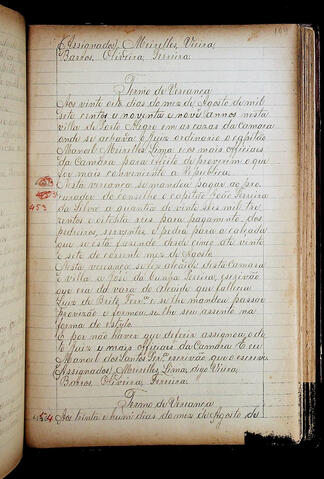 (Assignados) Meirelles, Vieira,
Barros, Oliveira, Ferreira.
Termo de Vereança
Aos vinte oito dias do mez de Agosto de mil
sete centos e noventa e nove annos nesta
villa de Porto Alegre em as cazas da Camara
onde se achava o Juiz ordinario o capitão
Manoel Meirelles Lima e os mais officiaes
da Camara para effeito de proverem o que
for mais conveniente a Republica.
Nesta vereança se mandou pagar ao pro-
curador do conselho o capitão João Ferreira
da Silva a quantia de vinte seis mil tre-
zentos e oitenta reis para pagamento dos
pedreiros, serventes e pedra para a calçada
que se está fazendo desde cinco até vinte
e sete do corrente mez de Agosto.
Nesta vereança se fez alcaide desta Camara
e villa a José da Cunha Pereira, escrivão
que era da vara do Alcaide que falleceu
Luiz de Brito Ferrª e se lhe mandou passar
provizão e formou-se lhe seu assento na
forma do estylo.
E por não haver que deferir assignou o d.
o Juiz e mais officiaes da Camara E eu
Manoel dos Santos escrivão que o escrevi.
(Assignados) Meirelles Lima, digo Vieira,
Barros, Oliveira, Ferreira.
Termo de Vereança
Aos trinta e hum dias do mez de Agosto de
453
454